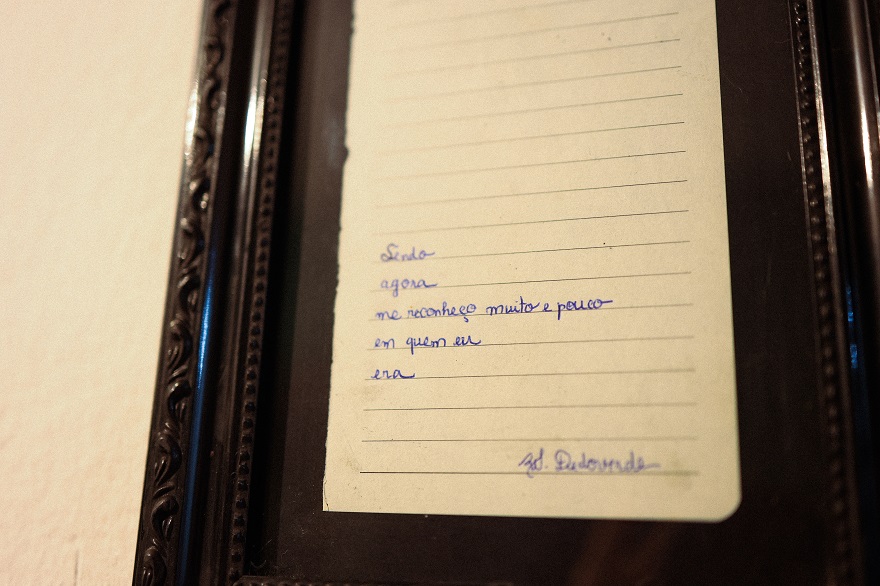 Sendo
agora
me reconheço muito e pouco
em quem eu
era
Dedoverde